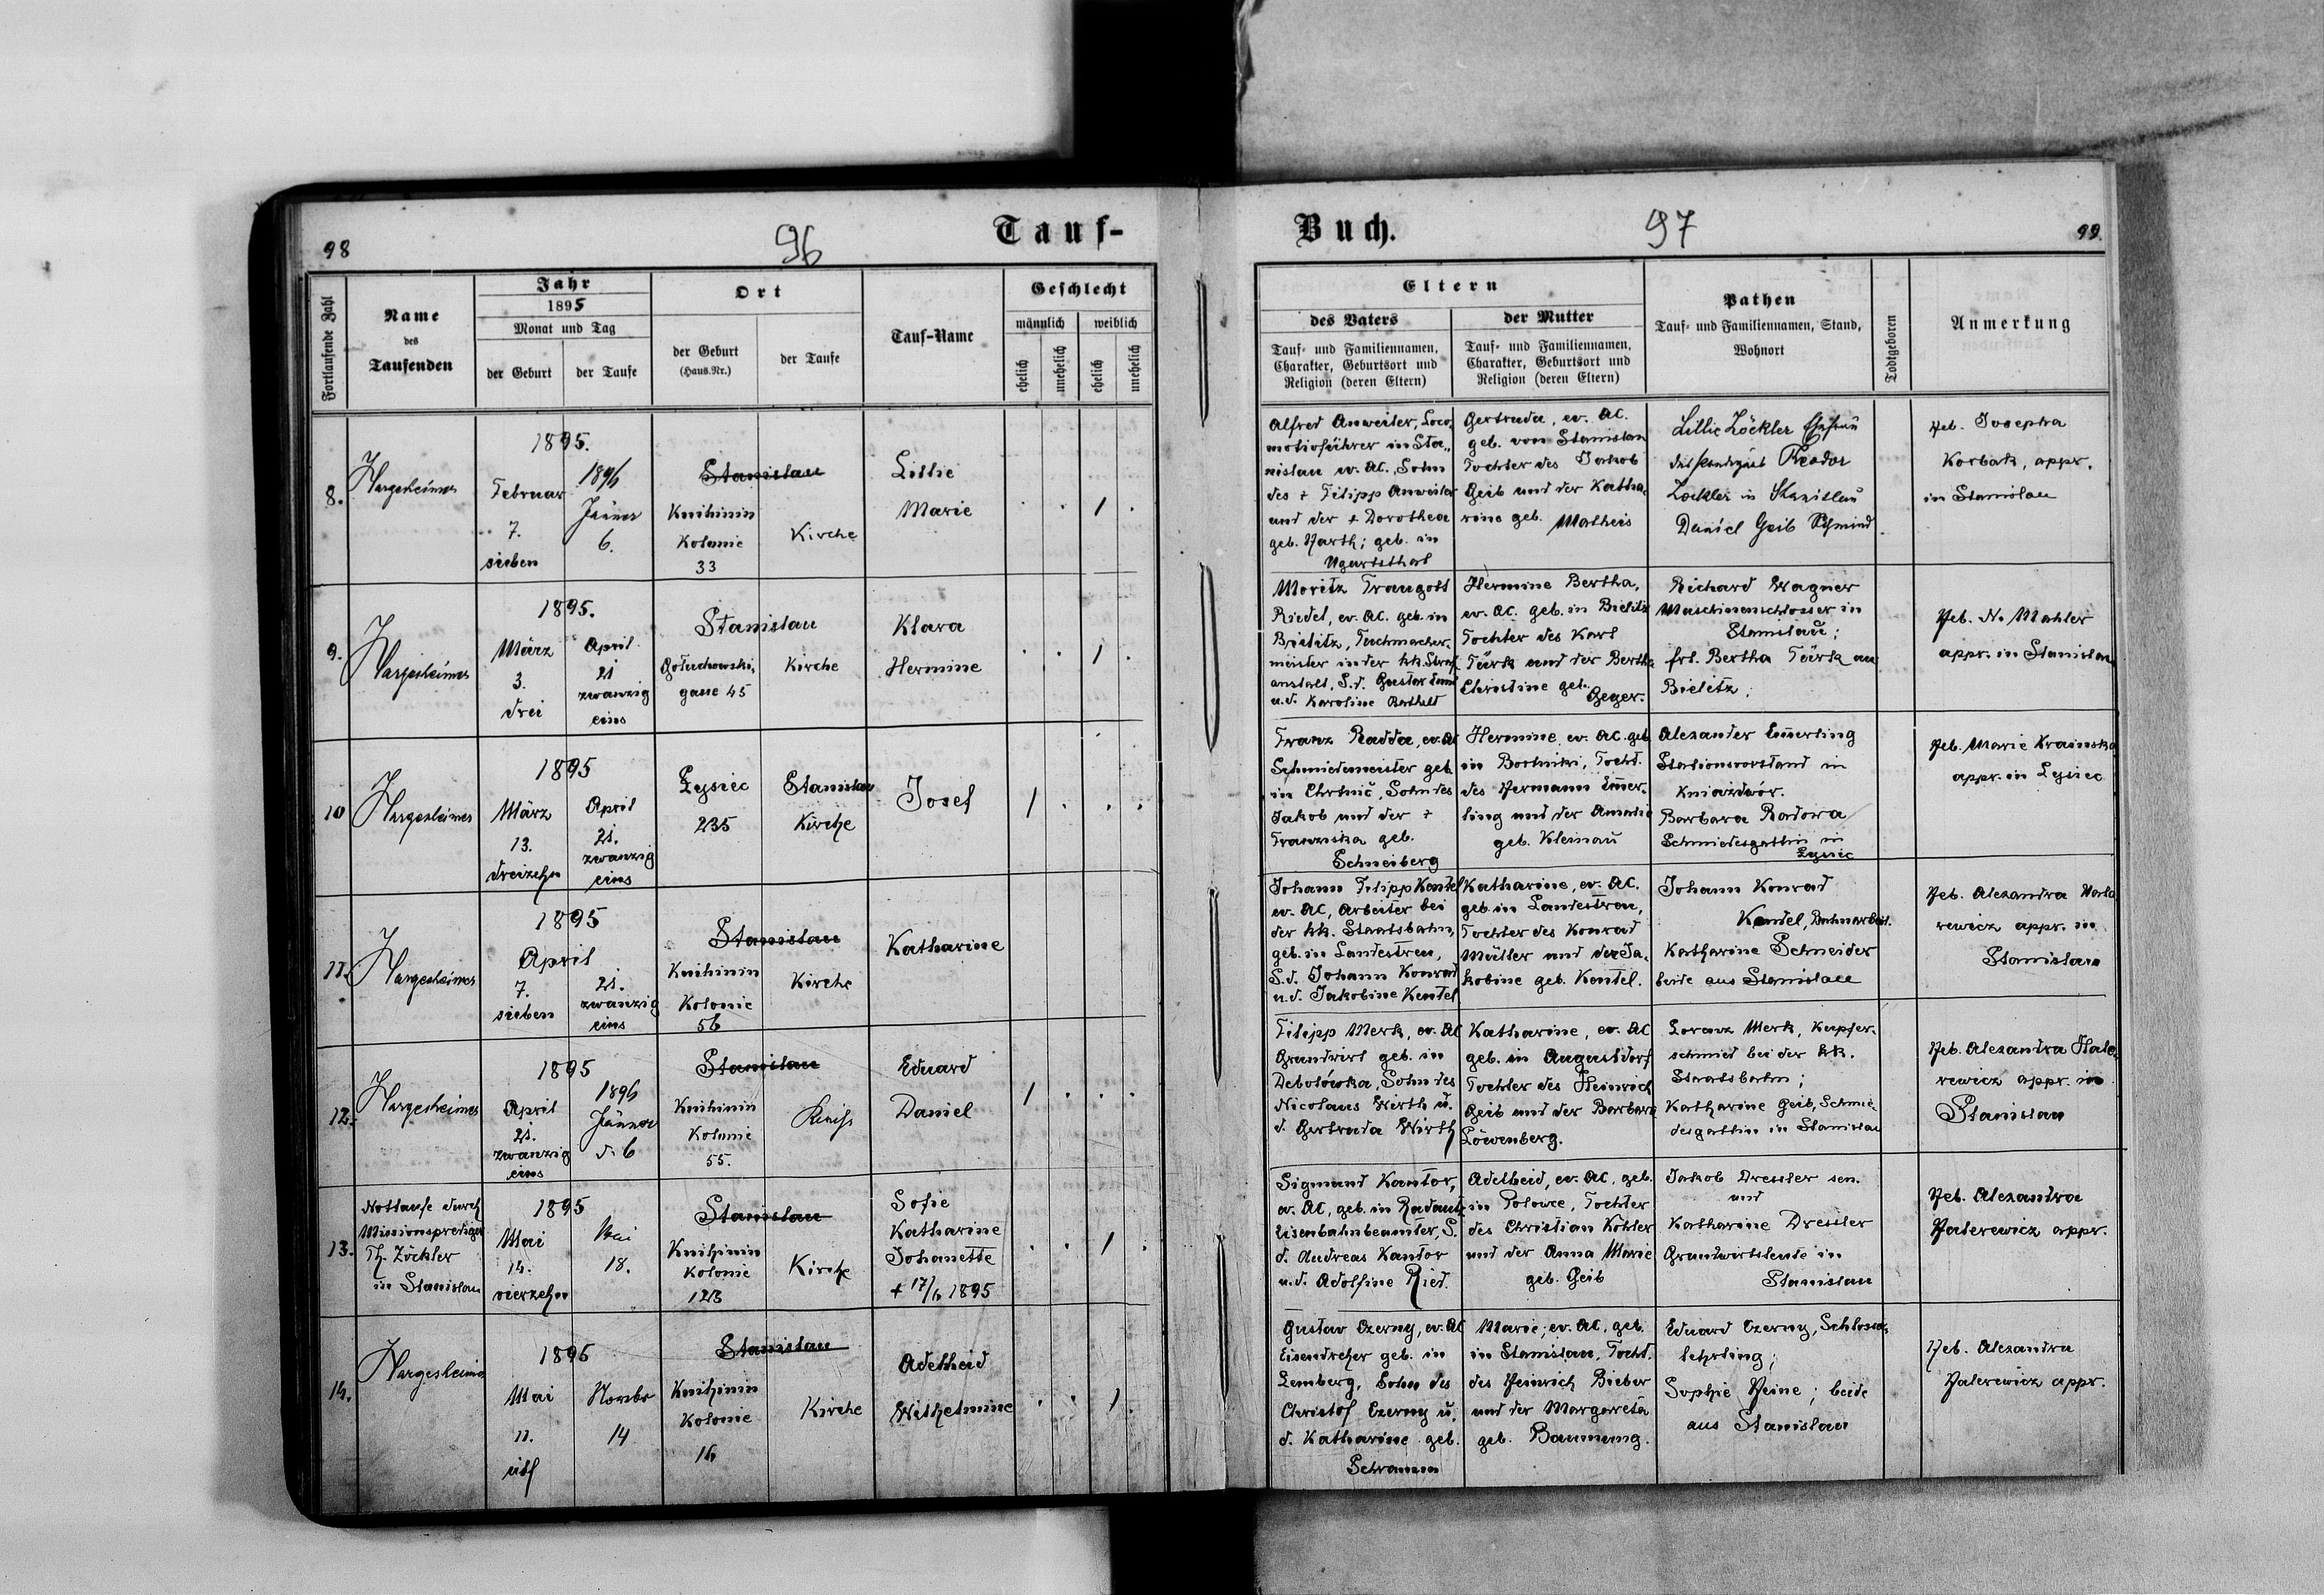 98
96
Tauf-
Fortlaufende Zahl
Name
des
Taufenden
Jahr
1895
Monat und Tag
der Geburt
der Taufe
Ort
der Geburt
(Haus.Nr.)
der Taufe
Tauf-Name
Geschlecht
männlich
weiblich
ehelich
unehelich
ehelich
unehelich
8.
Hargesheimer
1895.
Februar
7.
sieben
1896
Jänner
6.
Stanislau
Knihinin
Kolonie
33
Kirche
Lillie
Marie
1
9.
Hargesheimer
1895.
März
3.
drei
April
21
zwanzig
eins
Stanislau
Gołuchowski,
gasse 45
Kirche
Klara
Hermine
1
10
Hargesheimer
1895
März
13.
dreizehn
April
21.
zwanzig
eins
Łysiec
235
Stanislau
Kirche
Josef
1
11.
Hargesheimer
1895
April
7.
sieben
21.
zwanzig
eins
Stanislau
Knihinin
Kolonie
56
Kirche
Katharine
12.
Hargesheimer
1895
April
21.
zwanzig
eins
1896
Jänner
d. 6
Stanislau
Knihinin
Kolonie
55.
Eduard
Daniel
1
13.
Nottaufe durch
Missionsprediger
Th. Zöckler
in Stanislau
1895
Mai
14.
vierzehn
Mai
18.
Stanislau
Knihinin
Kolonie
123
Kirche
Sofie
Katharine
Johanette
+ 17/6 1895
1
14.
Hargesheimer
1895
Mai
11.
eilf
Novbr
14
Stanislau
Knihinin
Kolonie
16
Kirche
Adelheid
Wilhelmine
1
Buch.
97
99.
Eltern
des Vaters
Tauf- und Familiennamen,
Charakter, Geburtsort und
Religion (deren Eltern)
der Mutter
Tauf- und Familiennamen,
Charakter, Geburtsort und
Religion (deren Eltern)
Pathen
Tauf- und Familiennamen, Stand,
Wohnort
Todtgeboren
Anmerkung
Alfred Anweiler, Loco,
motivführer in Sta,,
nislau ev. AC., Sohn
des + Filipp Anweiler
und der + Dorothea
geb. Harth; geb. in
Ugartsthal
Gertruda, ev. AC.
geb. von Stanislau
Tochter des Jakob
Geib und der Katha,
rine geb. Matheis
Lillie Zöckler
Theodor
Zöckler in Stanislau
Daniel Geib Schmied
Heb. Josepha
Korbak, appr.
in Stanislau
Moritz Traugott
Riedel, ev. AC. geb. in
Bielitz, Tuchmacher-
meister in der kk. Straf
anstalt, S. d. Gustav
u. d. Karoline Barthelt
Hermine Bertha,
ev. AC. geb. in Bielitz
Tochter des Karl
Türk und der Bertha
Christine geb.
Geyer.
Richard Wagner
Maschinenschlosser in
Stanislau;
frl. Bertha Türk au
Bielitz.
Heb. N. Mahler
appr. in Stanislau
Franz Radda, ev. AC
Schmiedemeister geb.
in Chrtnič, Sohn des
Jakob und der +
Franziska geb.
Schneiberg
Hermine ev. AC. geb
in Bortniki, Tocht.
des Hermann Emer-
ling und der Amalie
geb. Kleinau
Alexander Emerling
Stationsvorstand in
Kniazdwór.
Barbara Radowa
Schmiedesgattin in
Łysiec
Heb. Marie Krainska
appr. in Łysiec
Johann Filipp Kentel
ev. AC, Arbeiter bei
der kk. Staatsbahn,
geb. in Landestreu,
S. d. Johann Konrad
u. d. Jakobine Kentel
Katharine, ev. AC.
geb. in Landestreu,
Tochter des Konrad
Müller und der Ja,
kobine geb. Kentel.
Johann Konrad
Kentel, Bahnarbeit.
Katharine Schneider
beide aus Stanislau
Heb. Alexandra
rewicz appr. in
Stanislau
Filipp Merk, ev. AC
Grundwirt geb. in
Debolówka, Sohn des
Nicolaus Wirth u.
d. Gertruda Wirth
Katharine, ev. AC
geb. in Augustdorf
Tochter des Heinrich
Geib und der Barbara
Löwenberg.
Lorenz Merk, Kupfer-
schmied bei der kk.
Staatsbahn;
Katharine Geib, Schmie-
desgattin in Stanislau
Heb. Alexandra Hale,
rewicz appr. in
Stanislau
Sigmund Kantor,
ev. AC, geb. in Radautz
Eisenbahnbeamter, S.
d. Andreas Kantor
u. d. Adolfine Ried.
Adelheid, ev. AC, geb.
in Polowce, Tochter
des Christian Köhler
und der Anna Marie
geb. Geib
Jakob Dressler sen.
und
Katharine Dressler
Grundwirtsleute in
Stanislau
Heb. Alexandra
Halerewicz appr.
Gustav Czerny, ev. AC
Eisendreher geb. in
Lemberg, Sohn des
Christof Czerny u.
d. Katharine geb.
Schramm
Marie; ev. AC, geb.
in Stanislau, Tocht.
des Heinrich Bieber
und der Margareta
geb. Baumung.
Eduard Czerny, Schlosser-
lehrling;
Sophie Heine; beide
aus Stanislau
Heb. Alexandra
Halerewicz appr.